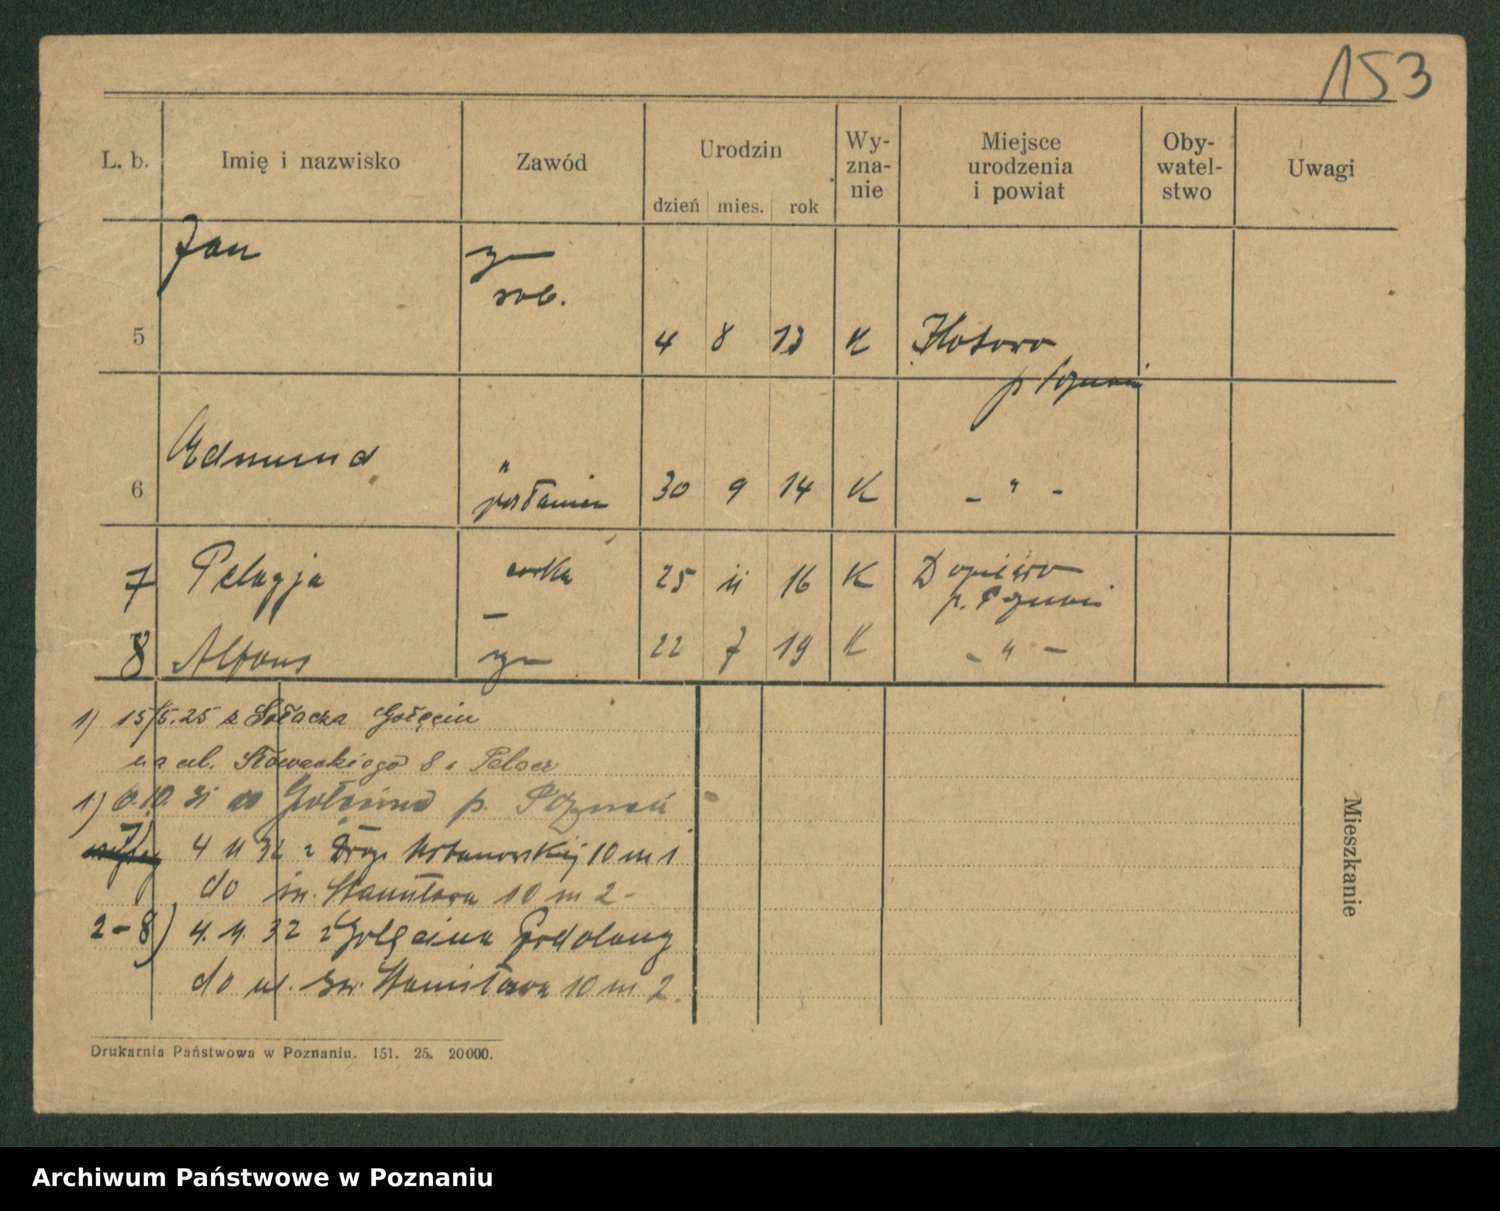 153
L. b. Imię i nazwisko Zawód Urodzin dzień mies. rok Wy-zna-nie Miejsce urodzenia i powiat Oby-watel-stwo Uwagi
Jan
rob.
5 4 8 13 K
p Poznań
Edmund
6 " posłaniec 30 9 14 K - " -
7 Pelagja córka 25 11 16 K Dopiewo
p. Poznań
8 Alfons 22 7 19 K - " -
1) 15/5.25 z Sołacza Golęcin
na ul. Słowackiego 8
1) 6.10. 31 do Golęcina p. Poznań
4 11 32 z Drogi Urbanowskiej 10 m 1
do św. Stanisława 10 m 2 -
2-8) 4. 11. 32 z Golęcina Podolany
do ul. św. Stanisława 10 m 2.
Mieszkanie
Drukarnia Państwowa w Poznaniu. 151. 25. 20000.
Archiwum Państwowe w Poznaniu